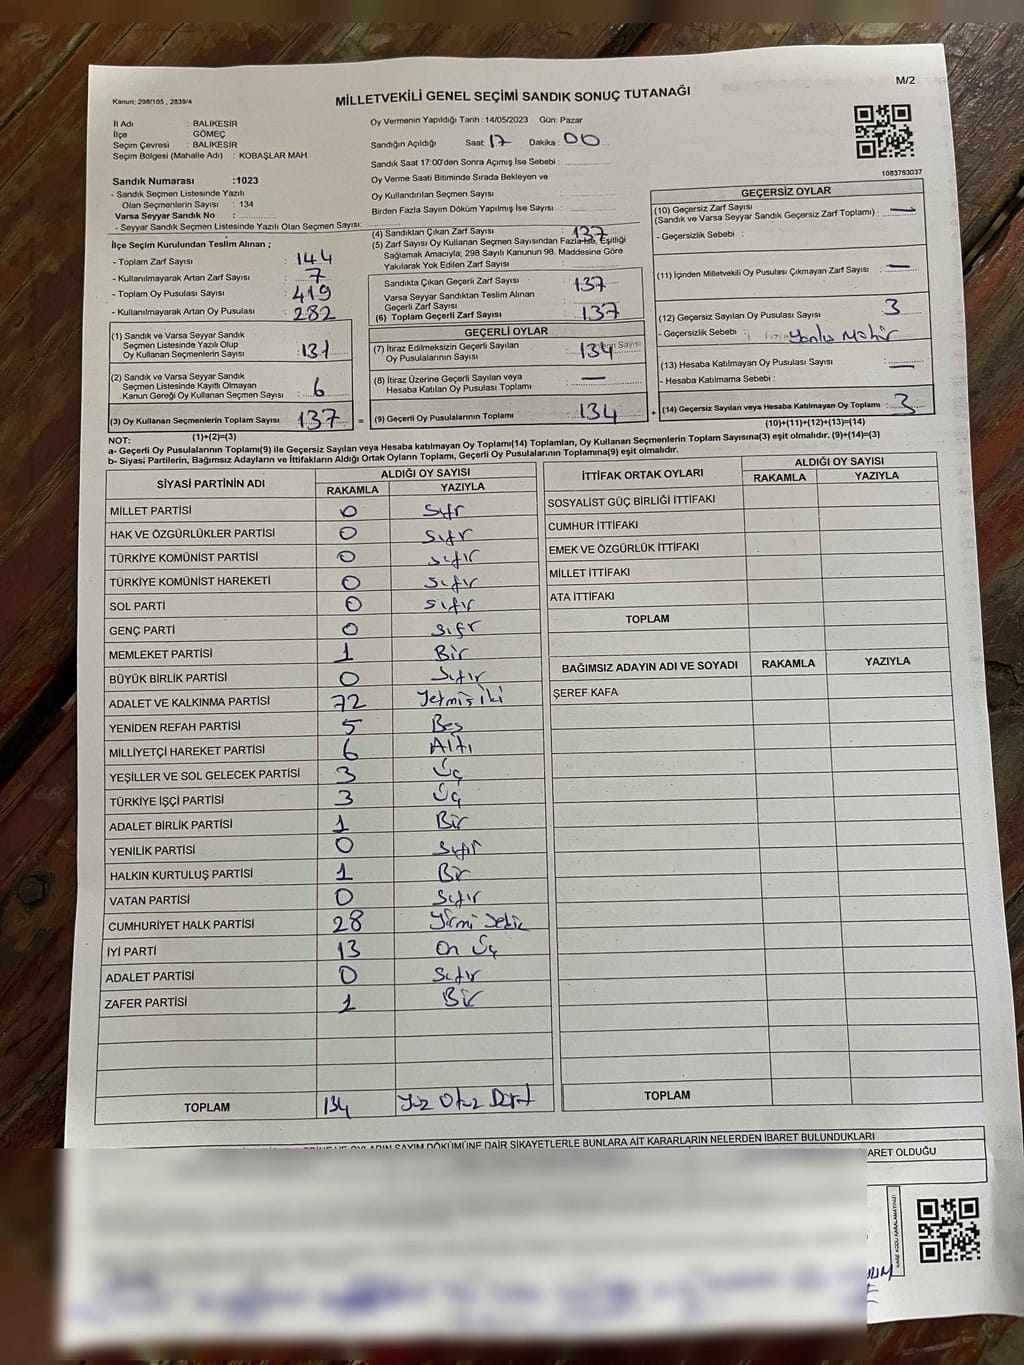 M/2
Kanun: 298/105 , 2839/4
MİLLETVEKİLİ GENEL SEÇİMİ SANDIK SONUÇ TUTANAĞI
İl Adı : BALIKESİR
İlçe : GÖMEÇ
Seçim Çevresi : BALIKESİR
Seçim Bölgesi (Mahalle Adı) : KOBAŞLAR MAH.
Oy Vermenin Yapıldığı Tarih : 14/05/2023 Gün: Pazar
Sandığın Açıldığı Saat: 17 Dakika : 00
Sandık Saat 17:00'den Sonra Açımış İse Sebebi :
Oy Verme Saati Bitiminde Sırada Bekleyen ve
Oy Kullandırılan Seçmen Sayısı :
Birden Fazla Sayım Döküm Yapılmış İse Sayısı :
1083763037
Sandık Numarası :1023
- Sandık Seçmen Listesinde Yazılı
Olan Seçmenlerin Sayısı : 134
Varsa Seyyar Sandık No :
- Seyyar Sandık Seçmen Listesinde Yazılı Olan Seçmen Sayısı:
İlçe Seçim Kurulundan Teslim Alınan ;
- Toplam Zarf Sayısı : 144
- Kullanılmayarak Artan Zarf Sayısı : 7
- Toplam Oy Pusulası Sayısı : 419
- Kullanılmayarak Artan Oy Pusulası : 282
(1) Sandık ve Varsa Seyyar Sandık
Seçmen Listesinde Yazılı Olup
Oy Kullanan Seçmenlerin Sayısı : 131
(2) Sandık ve Varsa Seyyar Sandık
Seçmen Listesinde Kayıtlı Olmayan
Kanun Gereği Oy Kullanan Seçmen Sayısı : 6
(3) Oy Kullanan Seçmenlerin Toplam Sayısı : 137
(1)+(2)=(3)
(4) Sandıktan Çıkan Zarf Sayısı : 137
(5) Zarf Sayısı Oy Kullanan Seçmen Sayısından Fazla İse, Eşitliği
Sağlamak Amacıyla; 298 Sayılı Kanunun 98. Maddesine Göre
Yakılarak Yok Edilen Zarf Sayısı :
Sandıkta Çıkan Geçerli Zarf Sayısı : 137
Varsa Seyyar Sandıktan Teslim Alınan
Geçerli Zarf Sayısı :
(6) Toplam Geçerli Zarf Sayısı : 137
GEÇERLİ OYLAR
(7) İtiraz Edilmeksizin Geçerli Sayılan
Oy Pusulalarının Sayısı : 134
(8) İtiraz Üzerine Geçerli Sayılan veya
Hesaba Katılan Oy Pusulası Toplamı : —
= (9) Geçerli Oy Pusulalarının Toplamı : 134
GEÇERSİZ OYLAR
(10) Geçersiz Zarf Sayısı
(Sandık ve Varsa Seyyar Sandık Geçersiz Zarf Toplamı) : —
- Geçersizlik Sebebi :
(11) İçinden Milletvekili Oy Pusulası Çıkmayan Zarf Sayısı : —
(12) Geçersiz Sayılan Oy Pusulası Sayısı : 3
- Geçersizlik Sebebi :
(13) Hesaba Katılmayan Oy Pusulası Sayısı : —
- Hesaba Katılmama Sebebi :
+ (14) Geçersiz Sayılan veya Hesaba Katılmayan Oy Toplamı : 3
(10)+(11)+(12)+(13)=(14)
NOT:
a- Geçerli Oy Pusulalarının Toplamı(9) ile Geçersiz Sayılan veya Hesaba katılmayan Oy Toplamı(14) Toplamları, Oy Kullanan Seçmenlerin Toplam Sayısına(3) eşit olmalıdır. (9)+(14)=(3)
b- Siyasi Partilerin, Bağımsız Adayların ve İttifakların Aldığı Ortak Oyların Toplamı, Geçerli Oy Pusulalarının Toplamına(9) eşit olmalıdır.
SİYASİ PARTİNİN ADI ALDIĞI OY SAYISI
RAKAMLA YAZIYLA
MİLLET PARTİSİ 0 Sıfr
HAK VE ÖZGÜRLÜKLER PARTİSİ 0 Sıfr
TÜRKİYE KOMÜNİST PARTİSİ 0 sıfır
TÜRKİYE KOMÜNİST HAREKETİ 0 sıfır
SOL PARTİ 0 sıfır
GENÇ PARTİ 0 sıfr
MEMLEKET PARTİSİ 1 Bir
BÜYÜK BİRLİK PARTİSİ 0 Sıfır
ADALET VE KALKINMA PARTİSİ 72 Yetmiş iki
YENİDEN REFAH PARTİSİ 5 Beş
MİLLİYETÇİ HAREKET PARTİSİ 6 Altı
YEŞİLLER VE SOL GELECEK PARTİSİ 3 Üç
TÜRKİYE İŞÇİ PARTİSİ 3 Üç
ADALET BİRLİK PARTİSİ 1 Bir
YENİLİK PARTİSİ 0 Sıfır
HALKIN KURTULUŞ PARTİSİ 1 Bir
VATAN PARTİSİ 0 Sıfır
CUMHURİYET HALK PARTİSİ 28 Yirmi Sekiz
İYİ PARTİ 13 On Üç
ADALET PARTİSİ 0 Sıfır
ZAFER PARTİSİ 1 Bir
TOPLAM 134 Yüz Otuz Dört
İTTİFAK ORTAK OYLARI ALDIĞI OY SAYISI
RAKAMLA YAZIYLA
SOSYALİST GÜÇ BİRLİĞİ İTTİFAKI
CUMHUR İTTİFAKI
EMEK VE ÖZGÜRLÜK İTTİFAKI
MİLLET İTTİFAKI
ATA İTTİFAKI
TOPLAM
BAĞIMSIZ ADAYIN ADI VE SOYADI RAKAMLA YAZIYLA
ŞEREF KAFA
TOPLAM
OYLARIN SAYIM DÖKÜMÜNE DAİR ŞİKAYETLERLE BUNLARA AİT KARARLARIN NELERDEN İBARET BULUNDUKLARI
ARET OLDUĞU
KARE KODU KARALAMAYINIZ!